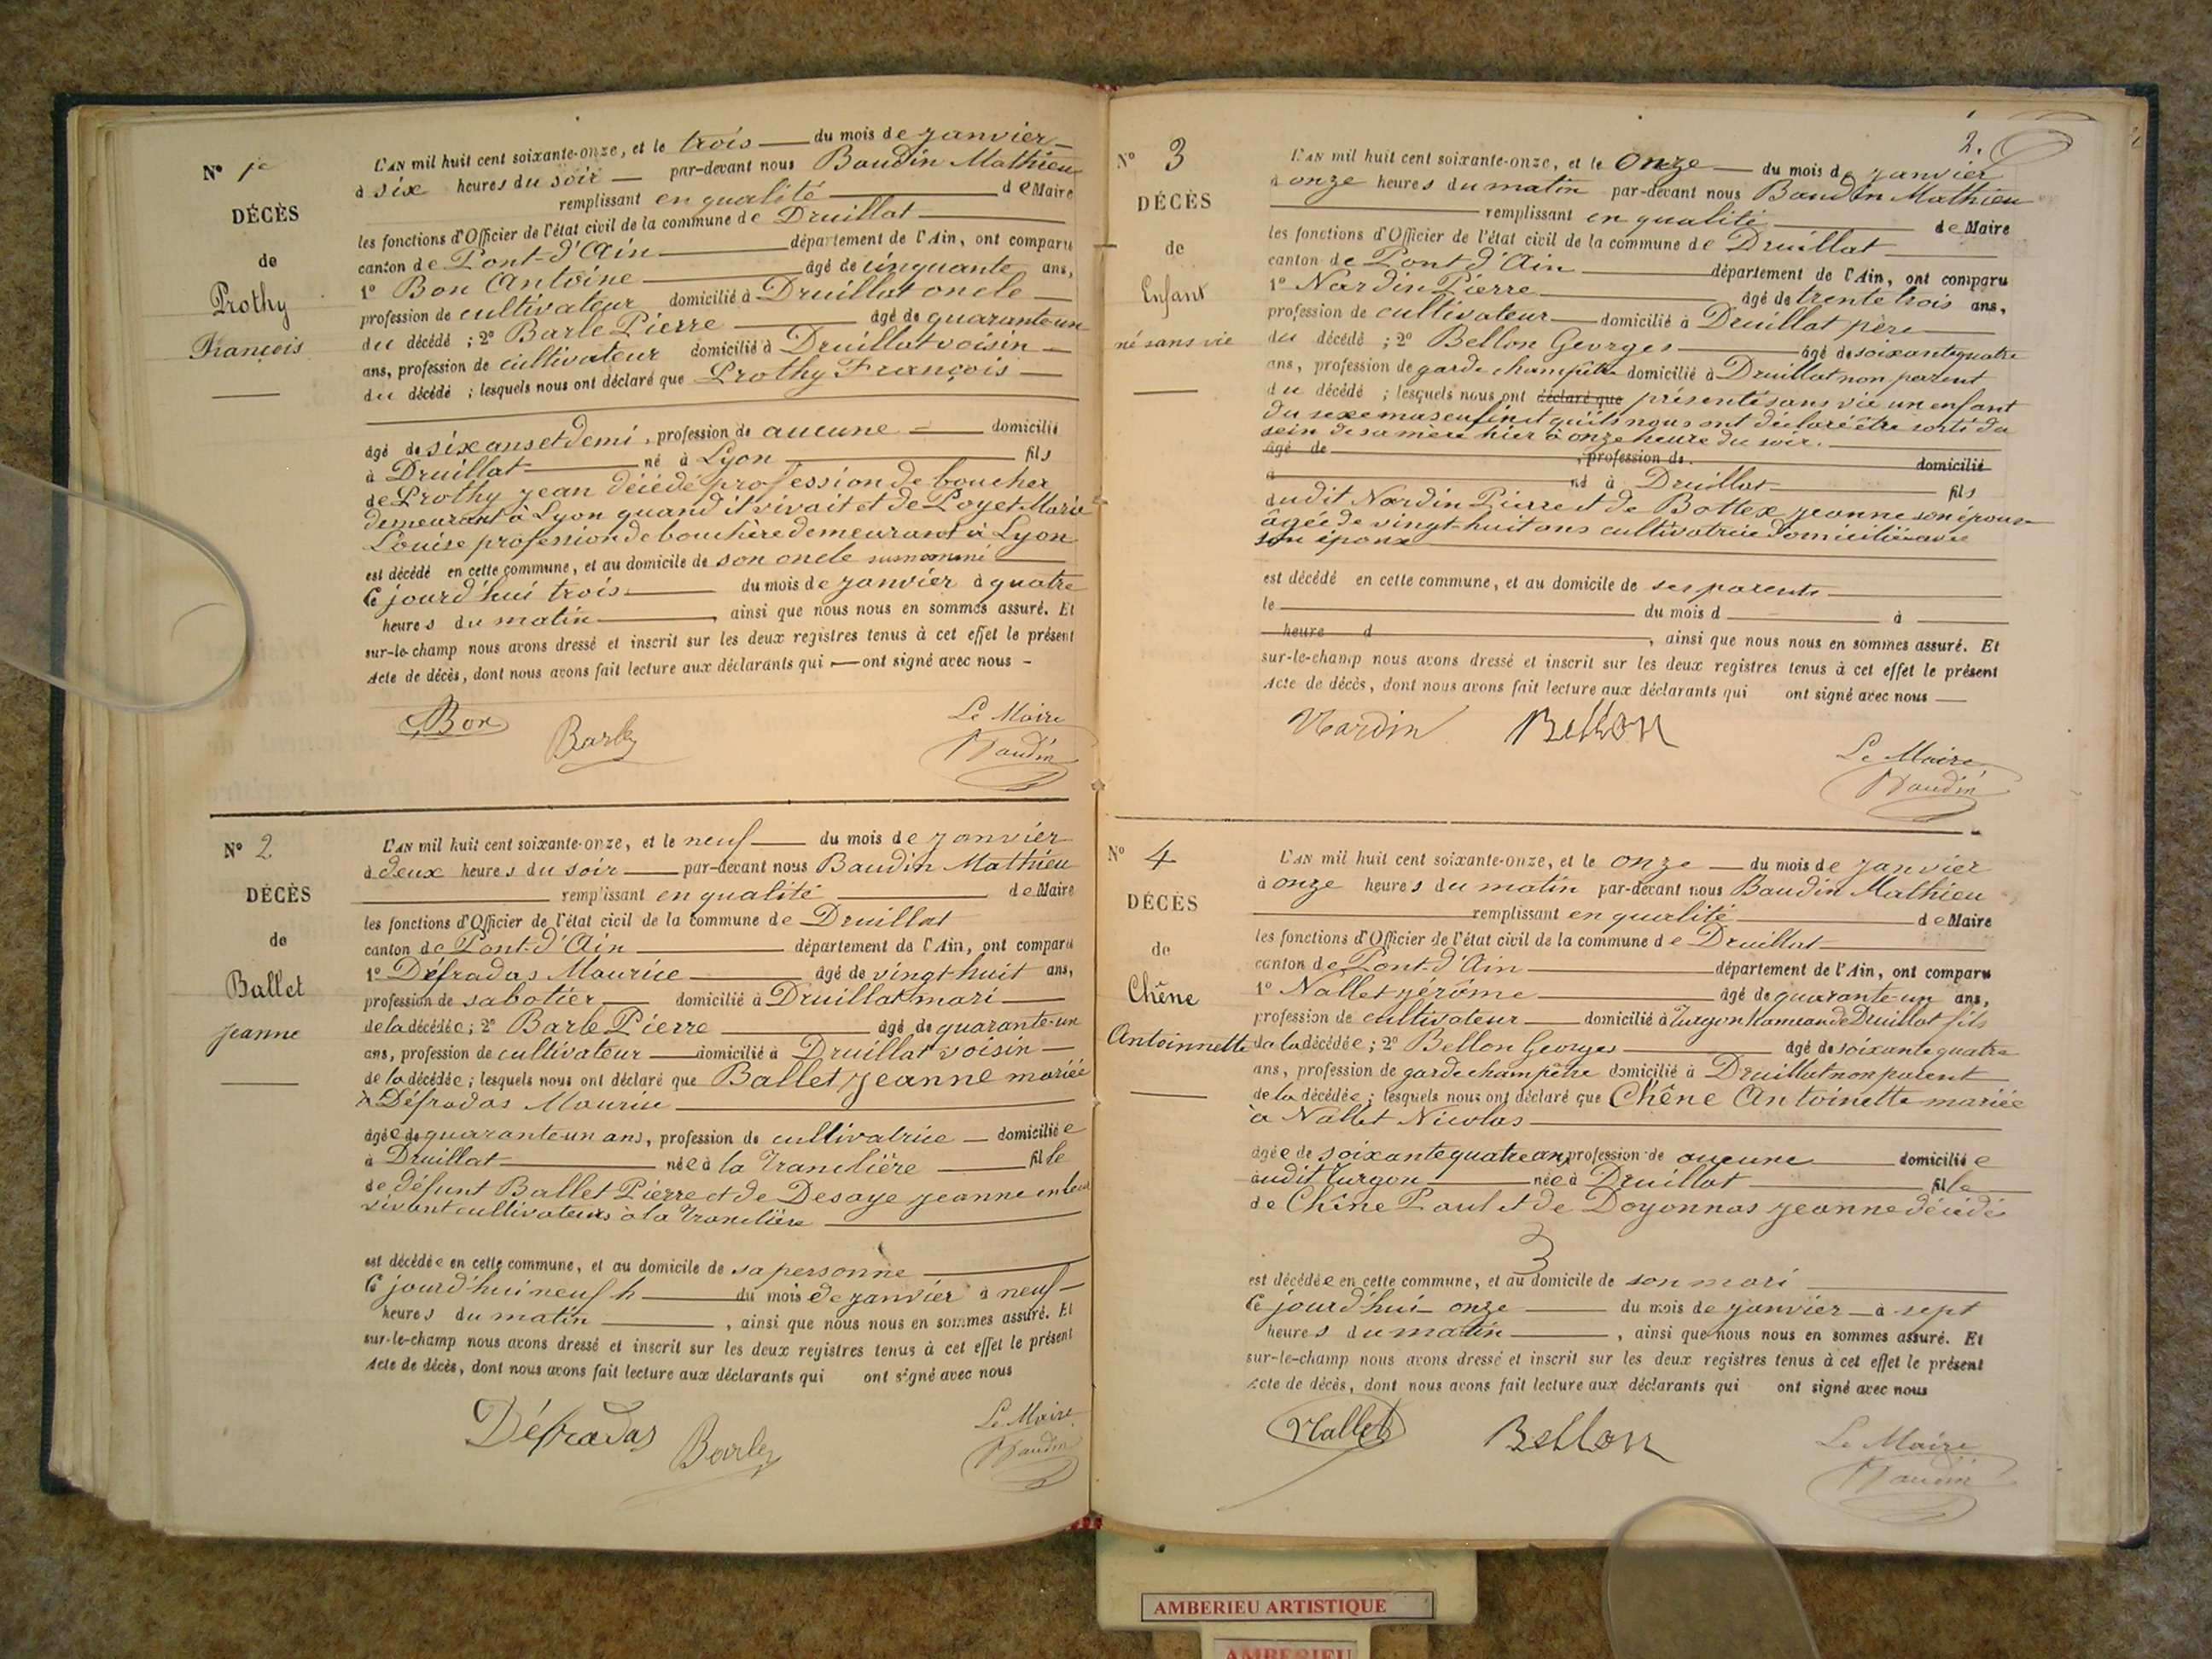 N° 1er
DÉCÈS
de
Prothy
François
L'AN mil huit cent soixante-onze, et le trois du mois de janvier
à six heures du soir par-devant nous Baudin Mathieu
remplissant en qualité de Maire
les fonctions d'Officier de l'état civil de la commune de Druillat
canton de Pont-d'Ain département de l'Ain, ont comparu
1° Bon Antoine âgé de cinquante ans,
profession de cultivateur domicilié à Druillat oncle
du décédé ; 2° Barle Pierre âgé de quarante un
ans, profession de cultivateur domicilié à Druillat voisin
du décédé ; lesquels nous ont déclaré que Prothy François
âgé de six ans et demi, profession de aucune domicilié
à Druillat né à Lyon fils
de Prothy jean décédé profession de boucher
demeurant à Lyon quand il vivait et de Poyet Marie
Louise profession de bouchère demeurant à Lyon
est décédé en cette commune, et au domicile de son oncle susnommé
Ce jourd'hui trois du mois de janvier à quatre
heures du matin, ainsi que nous nous en sommes assuré. Et
sur-le-champ nous avons dressé et inscrit sur les deux registres tenus à cet effet le présent
Acte de décès, dont nous avons fait lecture aux déclarants qui ont signé avec nous
Bon Barle Le Maire
Baudin
N° 2
DÉCÈS
de
Ballet
jeanne
L'AN mil huit cent soixante-onze, et le neuf du mois de janvier
à deux heures du soir par-devant nous Baudin Mathieu
remplissant en qualité de Maire
les fonctions d'Officier de l'état civil de la commune de Druillat
canton de Pont-d'Ain département de l'Ain, ont comparu
1° Défradas Maurice âgé de vingt huit ans,
profession de sabotier domicilié à Druillat mari
de la décédée ; 2° Barle Pierre âgé de quarante-un
ans, profession de cultivateur domicilié à Druillat voisin
de la décédée ; lesquels nous ont déclaré que Ballet jeanne mariée
à Défradas Maurice
âgée de quarante un ans, profession de cultivatrice domiciliée
à Druillat née à la Tranclière fille
de défunt Ballet Pierre et de Desaye jeanne en leur
vivant cultivateurs à la Tranclière
est décédée en cette commune, et au domicile de sa personne
Ce jourd'hui neuf h du mois de janvier à neuf
heures du matin, ainsi que nous nous en sommes assuré. Et
sur-le-champ nous avons dressé et inscrit sur les deux registres tenus à cet effet le présent
Acte de décès, dont nous avons fait lecture aux déclarants qui ont signé avec nous
Défradas Barle Le Maire
Baudin
2.
N° 3
DÉCÈS
de
Enfant
né sans vie
L'AN mil huit cent soixante-onze, et le onze du mois de janvier
à onze heures du matin par-devant nous Baudin Mathieu
remplissant en qualité de Maire
les fonctions d'Officier de l'état civil de la commune de Druillat
canton de Pont d'Ain département de l'Ain, ont comparu
1° Nardin Pierre âgé de trente trois ans,
profession de cultivateur domicilié à Druillat père
du décédé ; 2° Bellon Georges âgé de soixante quatre
ans, profession de garde champêtre domicilié à Druillat non parent
du décédé ; lesquels nous ont déclaré que présenté sans vie un enfant
du sexe masculin et qu'ils nous ont déclaré être sorti du
sein de sa mère hier à onze heure du soir.
âgé de, profession de domicilié
à né à Druillat fils
dudit Nardin Pierre et de Bottex jeanne son épouse
âgée de vingt-huit ans cultivatrice domiciliée avec
son époux
est décédé en cette commune, et au domicile de ses parents
le du mois d à
heure d, ainsi que nous nous en sommes assuré. Et
sur-le-champ nous avons dressé et inscrit sur les deux registres tenus à cet effet le présent
Acte de décès, dont nous avons fait lecture aux déclarants qui ont signé avec nous
Nardin Bellon
Le Maire
Baudin
N° 4
DÉCÈS
de
Chêne
Antoinnette
L'AN mil huit cent soixante-onze, et le onze du mois de janvier
à onze heures du matin par-devant nous Baudin Mathieu
remplissant en qualité de Maire
les fonctions d'Officier de l'état civil de la commune de Druillat
canton de Pont-d'Ain département de l'Ain, ont comparu
1° Nallet jérôme âgé de quarante-un ans,
profession de cultivateur domicilié à Turgon hameau de Druillat fils
de la décédée ; 2° Bellon Georges âgé de soixante quatre
ans, profession de garde champêtre domicilié à Druillat non parent
de la décédée ; lesquels nous ont déclaré que Chêne Antoinette mariée
à Nallet Nicolas
âgée de soixante quatre ans profession de aucune domiciliée
audit Turgon née à Druillat fille
de Chêne Paul et de Doyonnas jeanne décédés
est décédée en cette commune, et au domicile de son mari
Ce jourd'hui onze du mois de janvier à sept
heures du matin, ainsi que nous nous en sommes assuré. Et
sur-le-champ nous avons dressé et inscrit sur les deux registres tenus à cet effet le présent
Acte de décès, dont nous avons fait lecture aux déclarants qui ont signé avec nous
Nallet Bellon Le Maire
Baudin
AMBERIEU ARTISTIQUE
AMBERIEU